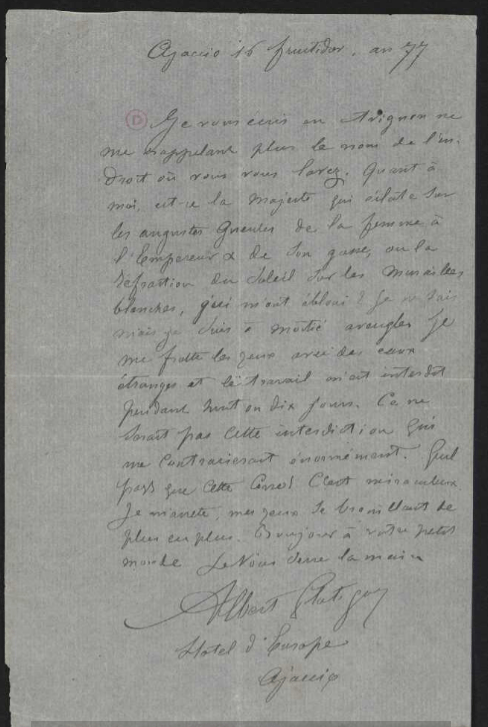 Ajaccio 16 fructidor, an 77
D Je vous écris en Avignon ne
me rappelant plus le nom de l'en-
droit où vous vous lavez. Quant à
moi, est-ce la majesté qui éclate sur
les augustes gueules de la femme à
l'Empereur & de son gosse, ou la
réfraction du Soleil sur les murailles
blanches, qui m'ont ébloui? Je ne sais
mais je suis à moitié aveugle. Je
me frotte les yeux avec des eaux
étranges et le travail m'est interdit
pendant huit ou dix jours. Ce ne
serait pas cette interdiction qui
me contrarierait énormément. Quel
pays que cette Corse! C'est miraculeux
Je m'arrête, mes yeux se brouillant de
plus en plus. Bonjour à votre petit
monde Je vous serre la main
Albert Glatigny
Hôtel d'Europe
Ajaccio